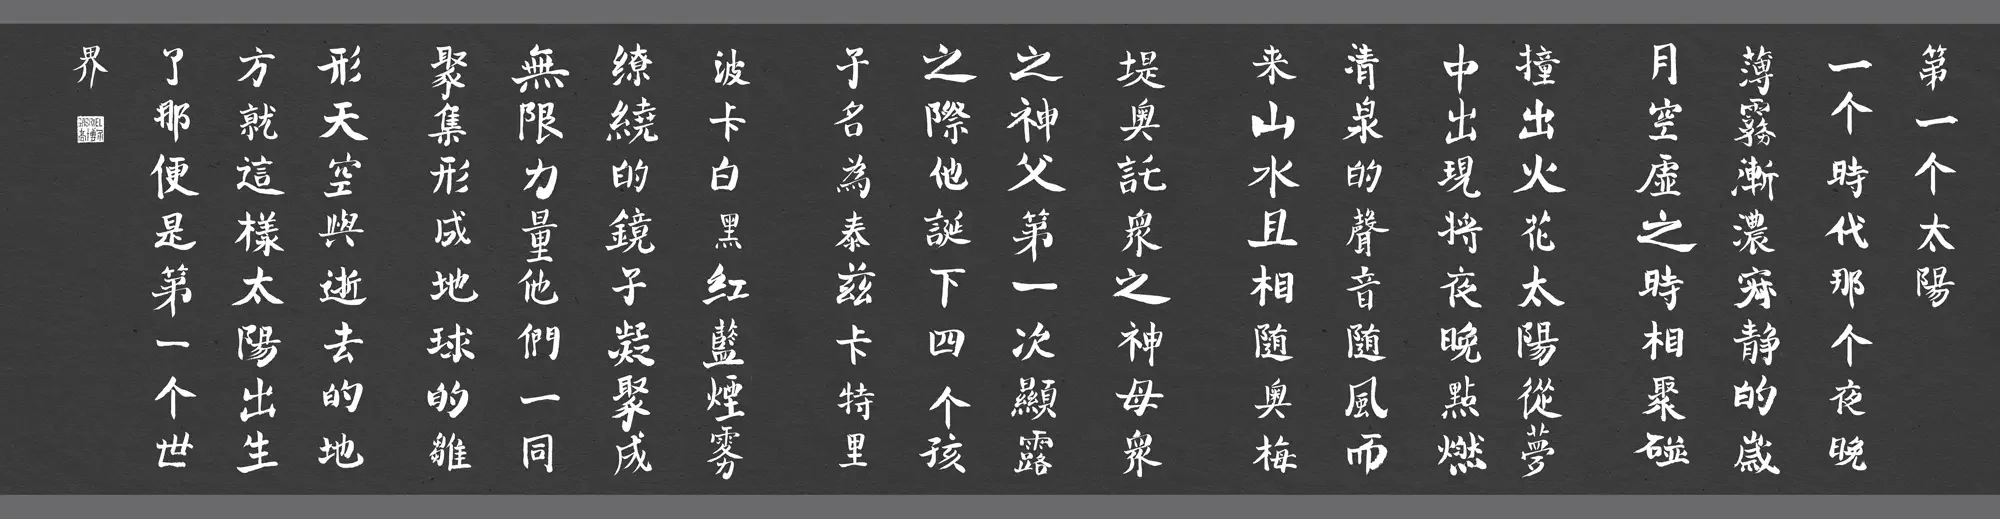 第一个太陽
一个時代那个夜晚
薄霧漸濃寂静的歲
月空虛之時相聚碰
撞出火花太陽從夢
中出現将夜晚點燃
清泉的聲音随風而
来山水且相随奥梅
堤奥託衆之神母衆
之神父第一次顯露
之際他誕下四个孩
子名為泰兹卡特里
波卡白黑红藍煙雾
繚繞的鏡子凝聚成
無限力量他們一同
聚集形成地球的雛
形天空與逝去的地
方就這樣太陽出生
了那便是第一个世
界
GABRIEL